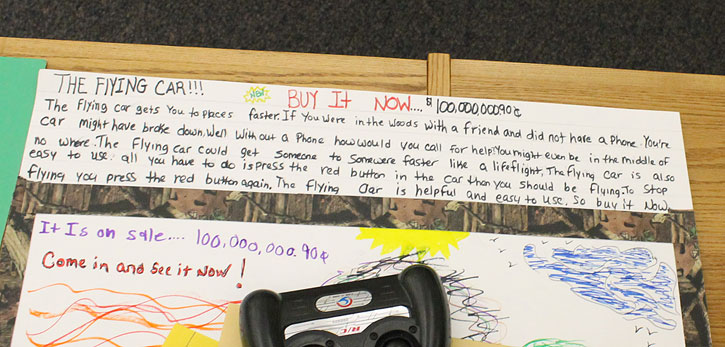 THE FlYING CAR!!! NEW BUY It NOW.... $100,000,00090¢
The flying car gets You to places faster. If You were in the woods with a friend and did not have a phone. You're
car might have broke down, Well with out a Phone how would you call for help? You might even be in the middle of
no where. The flying car could get someone to somewere faster like a lifeflight. The flying car is also
easy to use. all you have to do is press the red button in the car then you should be flying. To stop
flying you press the red button again. The flying car is helpful and easy to use. So buy it Now.
It Is on sale.... 100,000,000.90¢
Come in and See it Now!